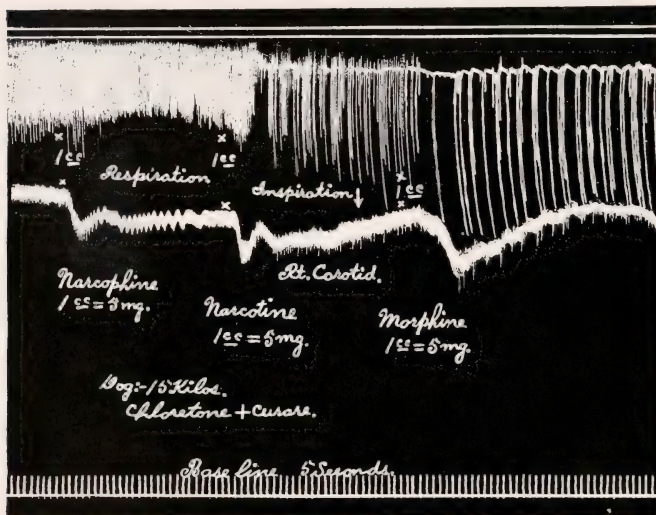 1 cc
1 cc
Respiration
Inspiration ↓
1 cc
Rt. Carotid.
Narcophine
1 cc = 3 mg.
Narcotine
1 cc = 5 mg.
Morphine
1 cc = 5 mg.
Dog:-15 Kilos.
Chloretone + Curare.
Base line 5 Seconds.